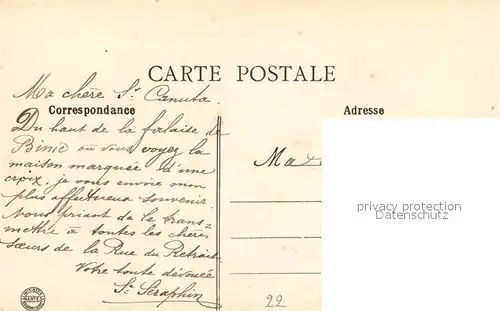 CARTE POSTALE
Correspondance
Adresse
Ma chère Sr Canuta.
Du haut de la falaise de
Binic où vous voyez la
maison marquée d'une
croix, je vous envoie mon
plus affectueux souvenir.
Vous priant de le trans-
mettre à toutes les chères
sœurs de la Rue du Retrait.
Votre toute dévouée
Sr Seraphin
privacy protection
Datenschutz
NANTES
22